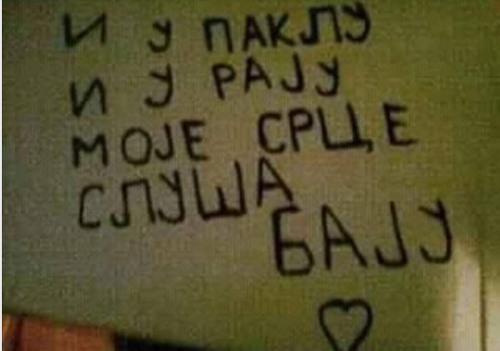 И У ПАКЛУ
И У РАЈУ
МОЈЕ СРЦЕ
СЛУША
БАЈУ